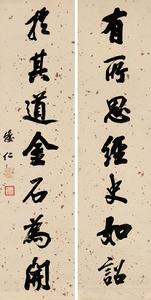 有所思經史如詔
於其道金石為開
倭仁